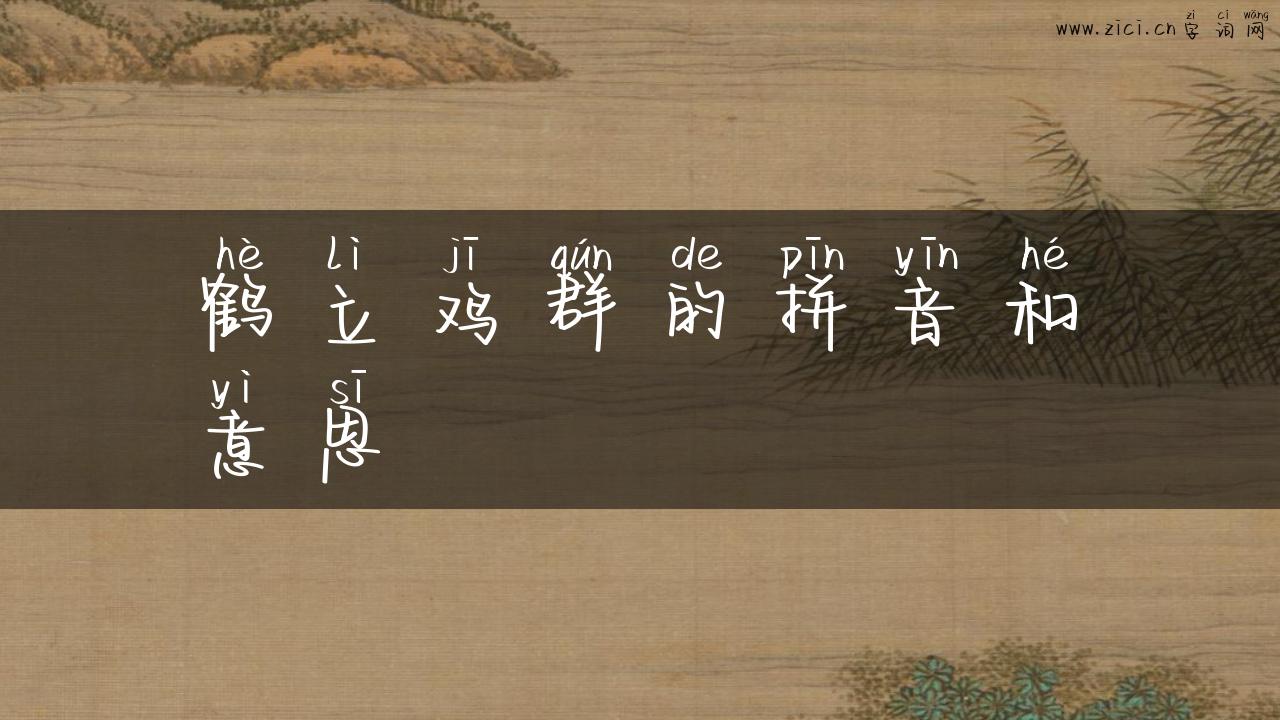 zì cí wǎng
www.zici.cn 字词网
hè lì jī qún de pīn yīn hé
鹤立鸡群的拼音和
yì sī
意思